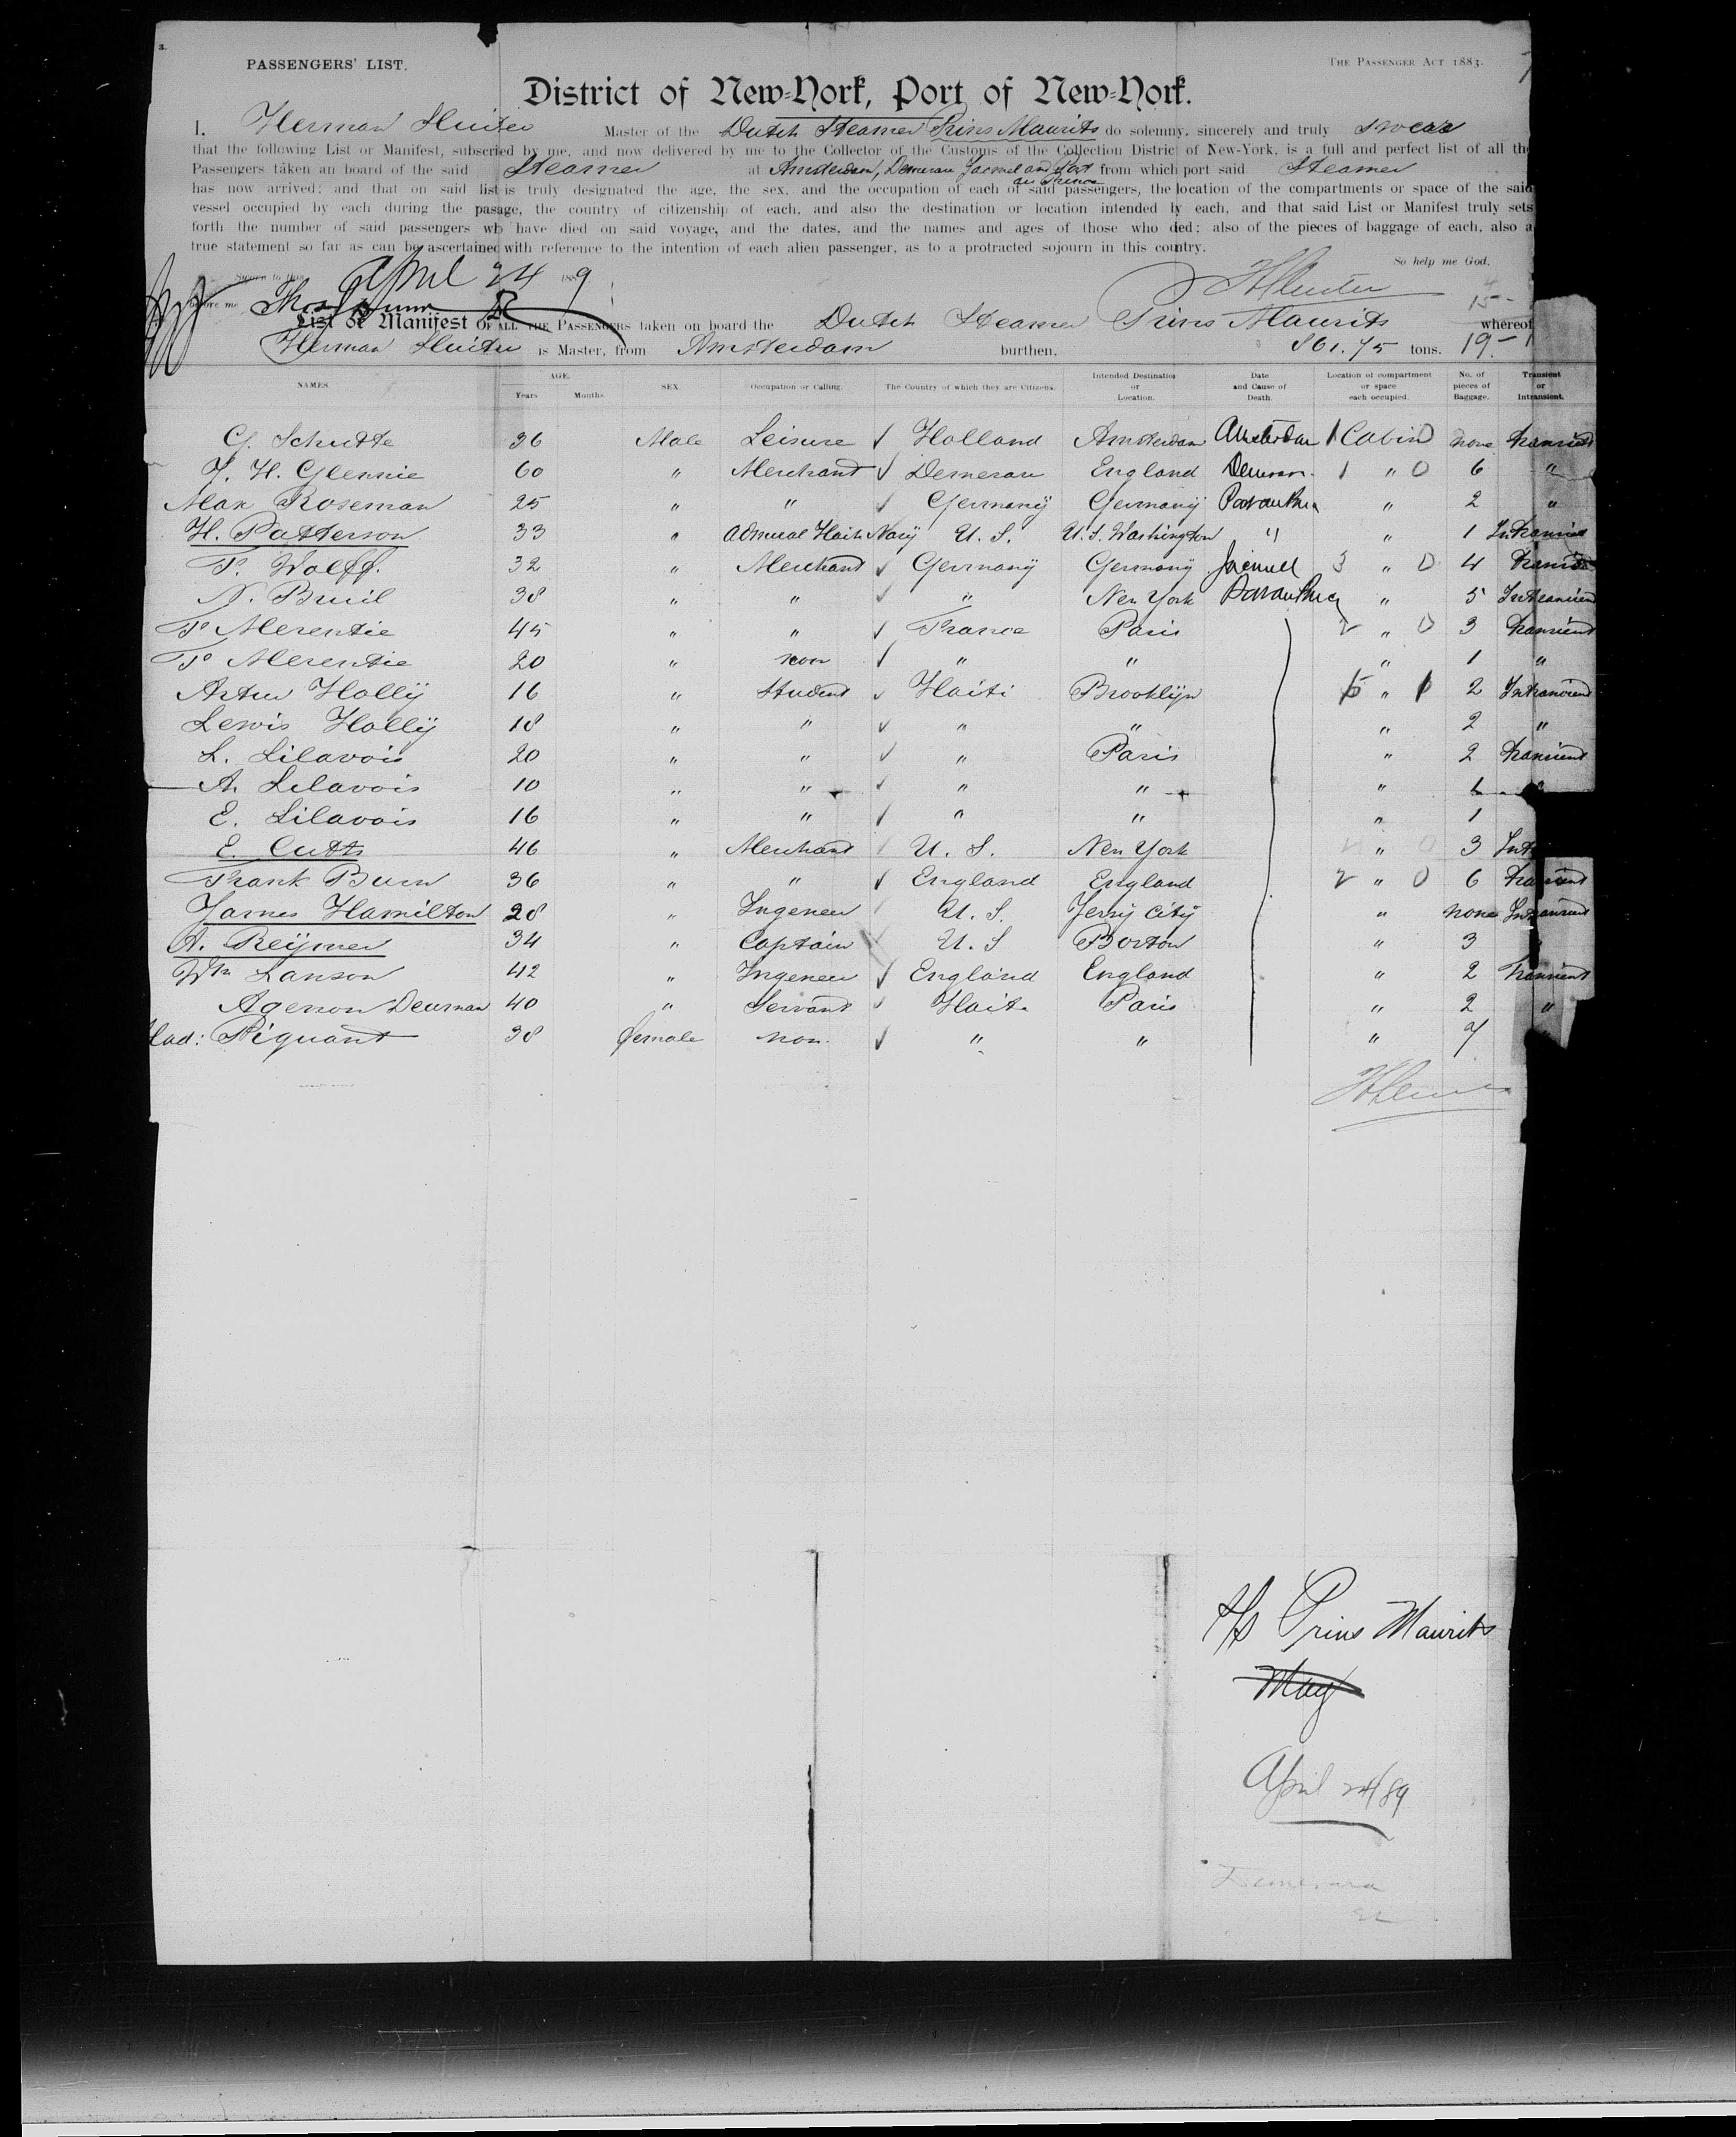 PASSENGERS' LIST.
THE PASSENGER ACT 1883.
District of New-York, Port of New-York.
I, Herman Master of the Dutch Steamer Prins Maurits do solemny, sincerely and truly swear
that the following List or Manifest, subscried by me, and now delivered by me to the Collector of the Customs of the Collection District of New-York, is a full and perfect list of all the
Passengers taken an board of the said Steamer at Amsterdam, Demerara Jacmel and Port au Prince from which port said Steamer
has now arrived; and that on said list is truly designated the age, the sex, and the occupation of each of said passengers, the location of the compartments or space of the said
vessel occupied by each during the pasage, the country of citizenship of each, and also the destination or location intended by each, and that said List or Manifest truly sets
forth the number of said passengers who have died on said voyage, and the dates, and the names and ages of those who died; also of the pieces of baggage of each, also a
true statement so far as can be ascertained with reference to the intention of each alien passenger, as to a protracted sojourn in this country.
So help me God.
Sworn to this April 24 1889
before me Thos Dunn
15-
List or Manifest OF ALL THE PASSENGERS taken on board the Dutch Steamer Prins Maurits whereof
Herman is Master, from Amsterdam burthen, 861.75 tons. 19-1
NAMES. AGE. Years Months SEX. Occupation or Calling. The Country of which they are Citizens. Intended Destination or Location. Date and Cause of Death. Location of compartment or space each occupied. No. of pieces of Baggage. Transient or Intransient.
G. Schutte 36 Male Leisure Holland Amsterdam Amsterdam 1 Cabin 0 none transient
J. H. Glennie 60 " Merchant Demerara England Demerara 1 " 0 6 "
Max Roseman 25 " " Germany Germany Port au Prince " 2 "
H. Patterson 33 " Admiral Haiti Navy U. S. U. S. Washington " " 1 Intransient
P. Wolff. 32 " Merchant Germany Germany Jacmel 3 " 0 4 transient
N. Bruil 38 " " " New York Port au Prince " 5 Intransient
P. Merentie 45 " " France Paris 2 " 0 3 transient
P. Merentie 20 " non " " " 1 "
Artur Holly 16 " Student Haiti Brooklijn 15 " 1 2 Intransient
Lewis Holly 18 " " " " " 2 "
L. Lilavois 20 " " " Paris " 2 transient
A. Lilavois 10 " " " " " 1
E. Lilavois 16 " " " " " 1
E. Cutts 46 " Merchant U. S. New York " 0 3
Frank Burn 36 " " England England 2 " 0 6 transient
James Hamilton 28 " Ingeneer U. S. Jersy City " none Intransient
A. Reijmer 34 " Captain U. S Boston " 3
Wm Lanson 42 " Ingeneer England England " 2 transient
Agerson Deurman 40 " Servant Haiti Paris " 2 "
Mad: Piquant 38 female non. " " " 7 "
S/S Prins Maurits
May
April 24/89
Demerara